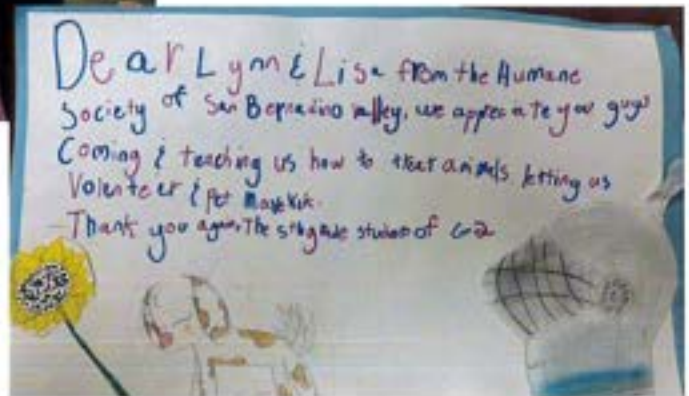 Dear Lynn & Lisa from the Humane
Society of San Bernadino valley, we appreciate you guys
Coming & teaching us how to treat animals letting us
Volenteer & Pet
Thank you again, The 5th grade students of G2